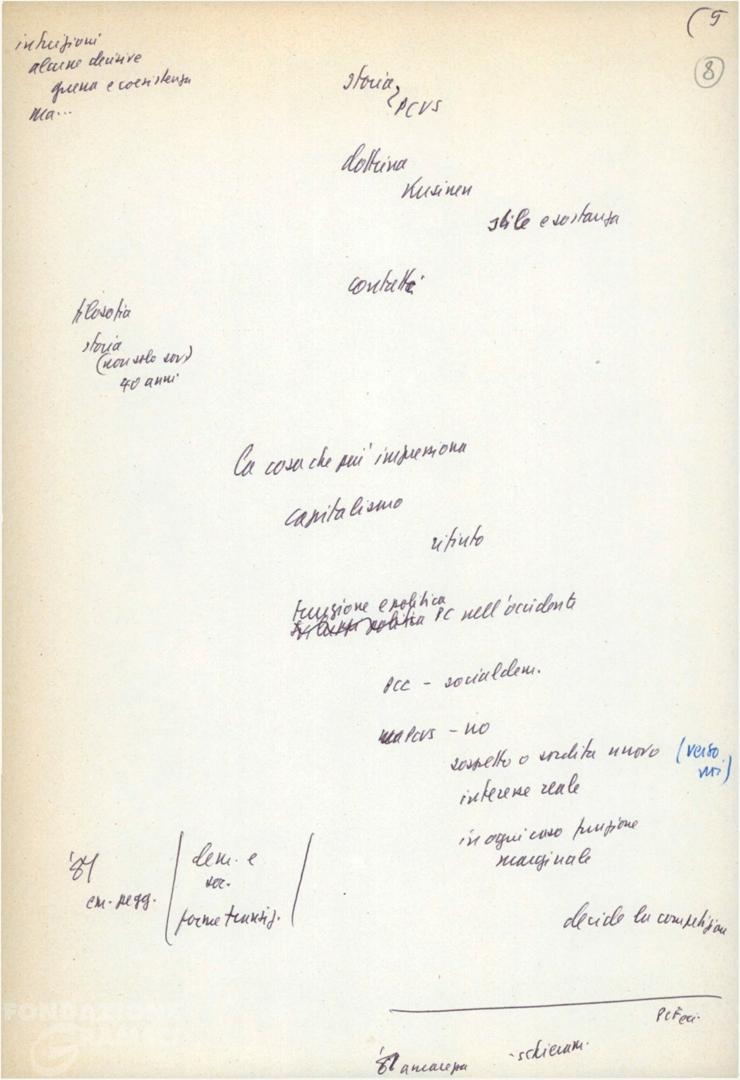 (5
8
intuizioni
alcune decisive
guerra e coesistenza
ma...
storia
PCUS
dottrina
Kusinen
stile e sostanza
contatti
filosofia
storia
(non solo sov)
40 anni
La cosa che più impressiona
capitalismo
rifiuto
funzione e politica
sviluppo politica PC nell'occidente
PCC - socialdem.
ma PCUS - no
sospetto o sordità nuovo (verso
noi)
interesse reale
in ogni caso funzione
marginale
'81
em. pegg.
dem. e
soc.
forme transiz.
decide la competizione
PCF ecc.
'81 ancarepa - schieram.
FONDAZIONE
GRAMSCI